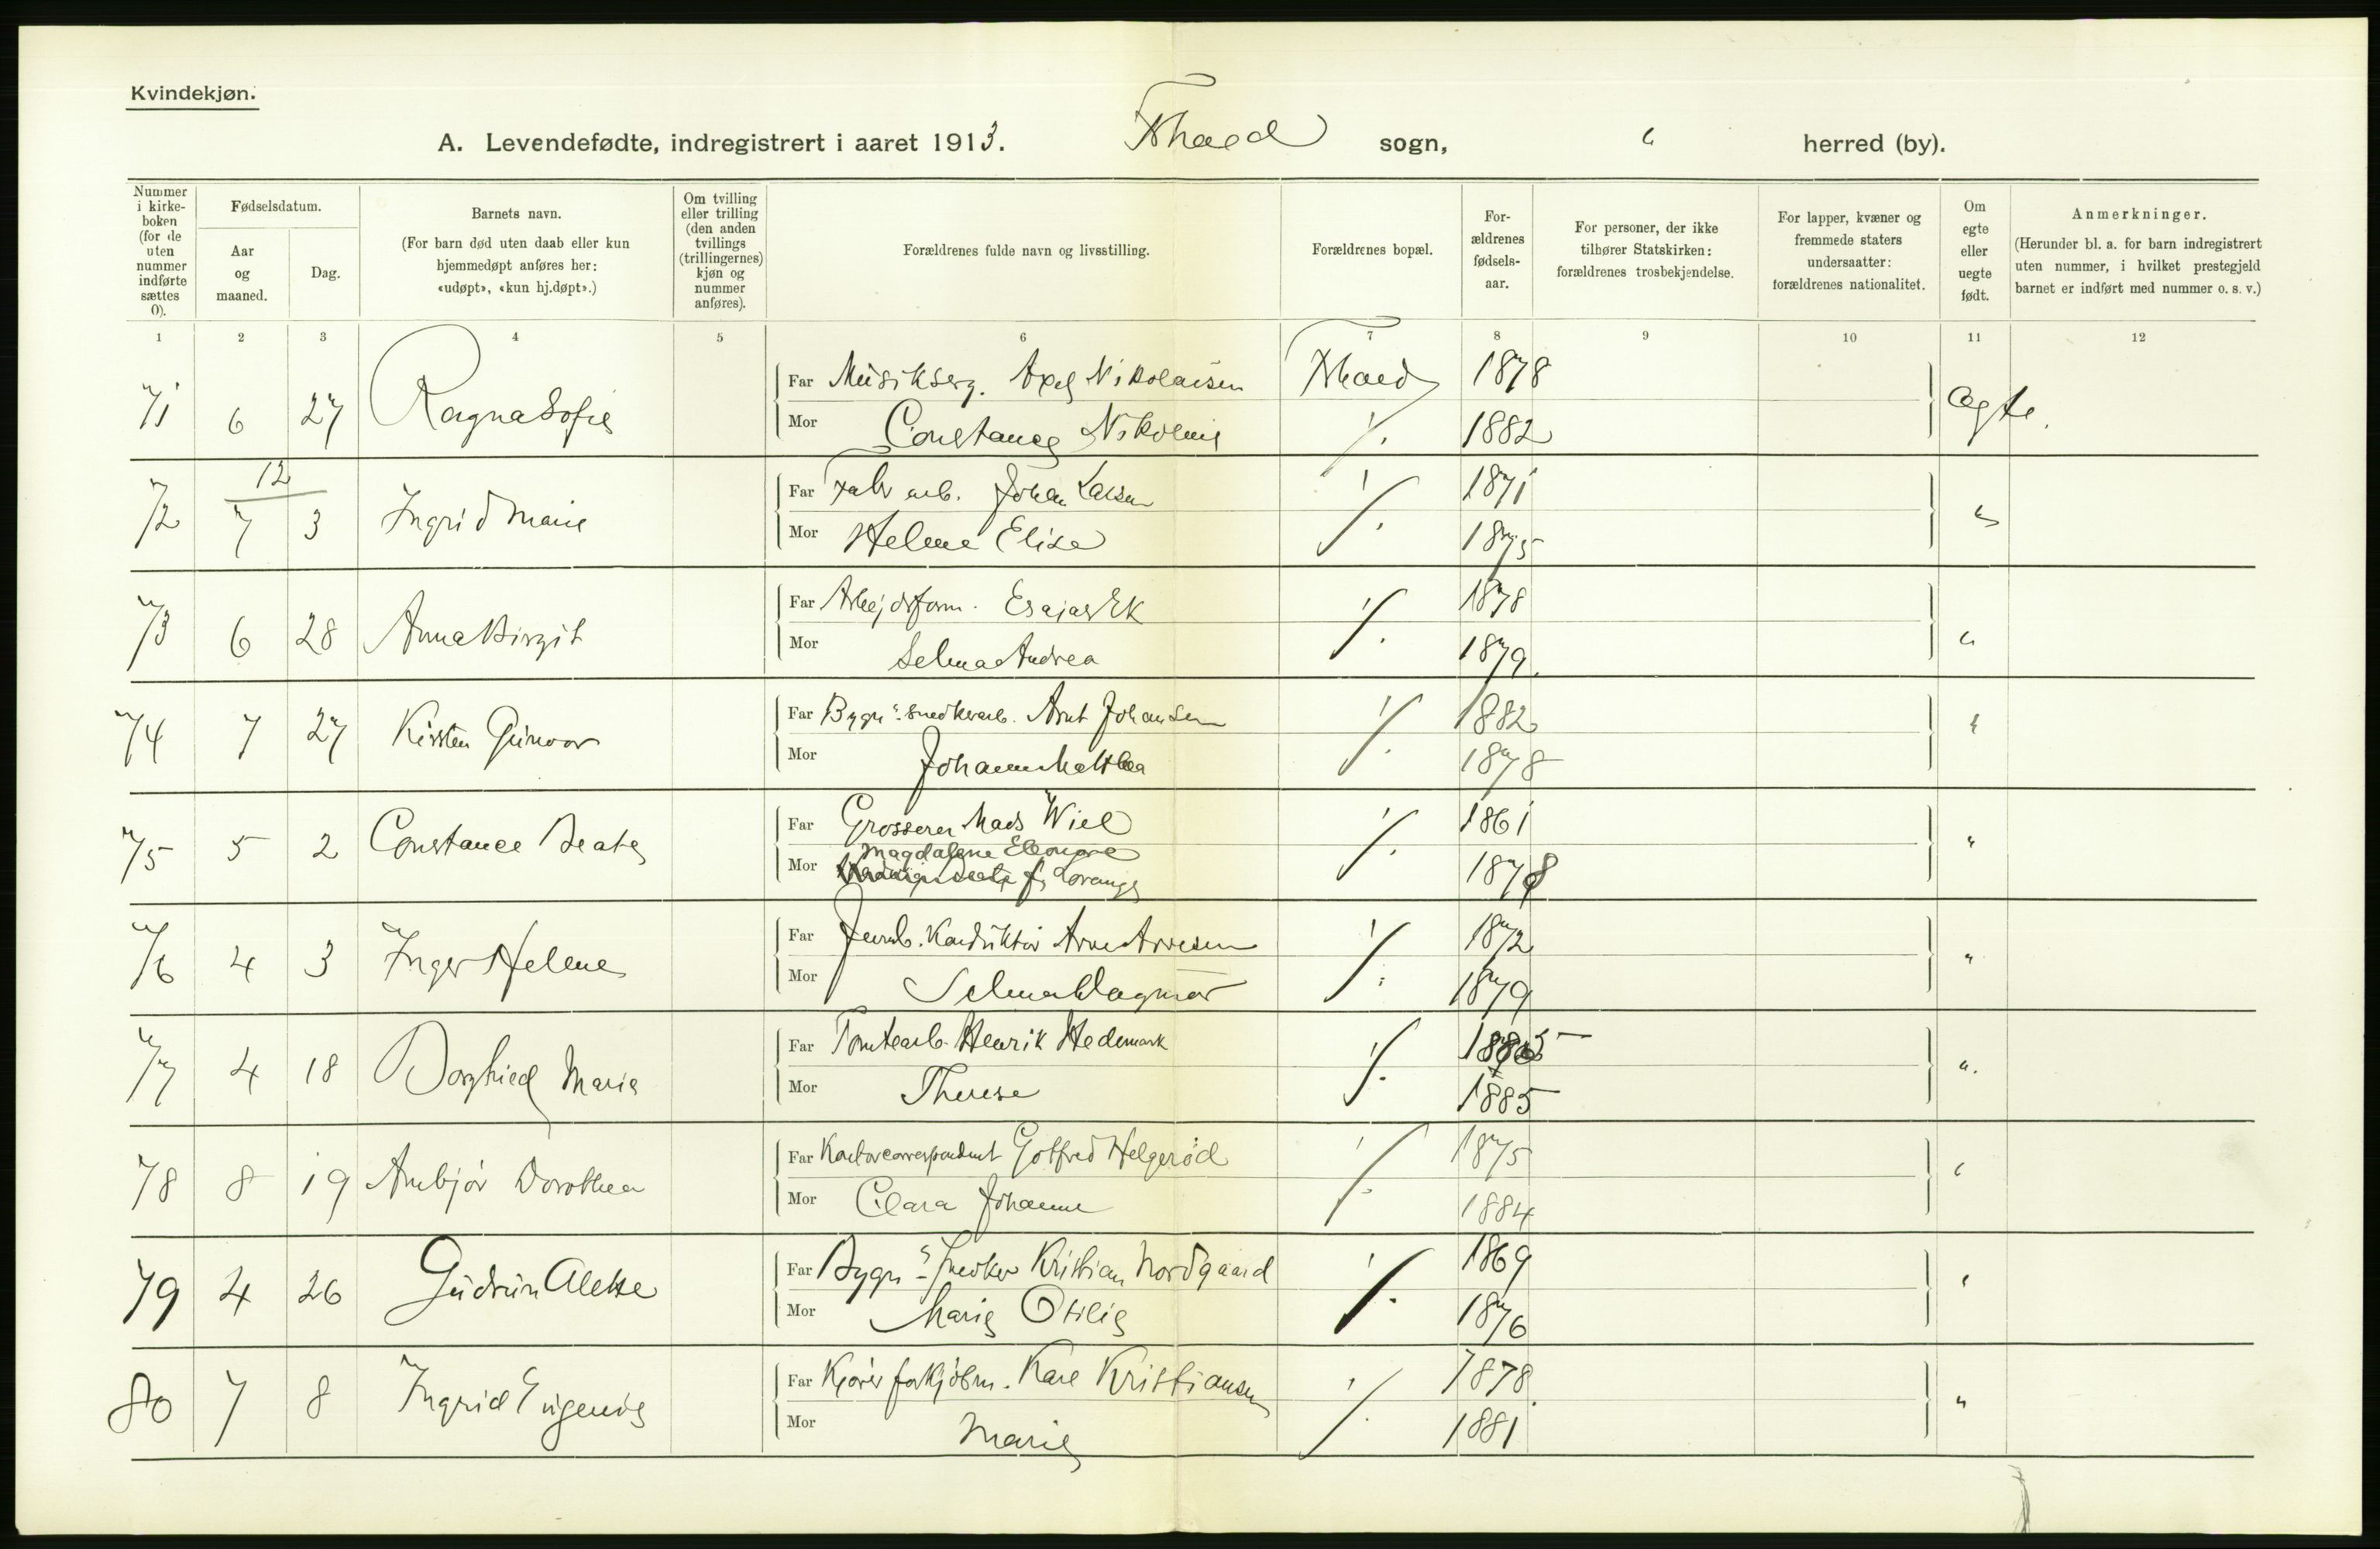 Kvindekjøn.
A. Levendefødte, indregistrert i aaret 1913. Fkhald sogn, " herred (by).
Nummer i kirkeboken (for de uten nummer indførte sættes 0).
Fødselsdatum.
Aar og maaned.
Dag.
Barnets navn.
(For barn død uten daab eller kun hjemmedøpt anføres her: «udøpt», «kun hj.døpt».)
Om tvilling eller trilling (den anden tvillings (trillingernes) kjøn og nummer anføres).
Forældrenes fulde navn og livsstilling.
Forældrenes bopæl.
Forældrenes fødselsaar.
For personer, der ikke tilhører Statskirken: forældrenes trosbekjendelse.
For lapper, kvæner og fremmede staters undersaatter: forældrenes nationalitet.
Om egte eller uegte født.
Anmerkninger.
(Herunder bl. a. for barn indregistrert uten nummer, i hvilket prestegjeld barnet er indført med nummer o. s. v.)
1 2 3 4 5 6 7 8 9 10 11 12
71 6 27 Ragna Sofie Far Musikserg. Axel Nikolaisen Fkhald 1878 Ægte.
Mor Constance Nikoline ./. 1882
72 12/7 3 Ingrid Marie Far Fabr arb. Johan Larsen ./. 1871 "
Mor Helene Elise 1875
73 6 28 Anna Birgit Far Arbejdsform. Esajas Ek ./. 1878 "
Mor Selma Andrea 1879.
74 7 27 Kirsten Gunvor Far Bygn.s snedkerarb. Arnt Johansen ./. 1882 "
Mor Johanne Mathea 1878
75 5 2 Constance Beate Far Grosserer Mads Wiel ./. 1861 "
Magdalene Eleonore
Mor f. Lorange 1878
76 4 3 Inger Helene Far Jernb. Konduktør Arne Arnesen ./. 1872 "
Mor Selma Dagmar 1879
77 4 18 Borghild Marie Far Tomtearb. Henrik Hedemark ./. "
Mor Therese 1885
78 8 19 Anbjør Dorothea Far Kontorcorrespondent Gotfred Helgerød ./. 1875 "
Mor Clara Johanne 1884
79 4 26 Gudrun Alette Far Bygn.s Snedker Kristian Nordgaard ./. 1869 "
Mor Marie Otilie 1876
80 7 8 Ingrid Eugenie Far Kjører forkjøbm. Karl Kristiansen ./. 1878. "
Mor Marie 1881